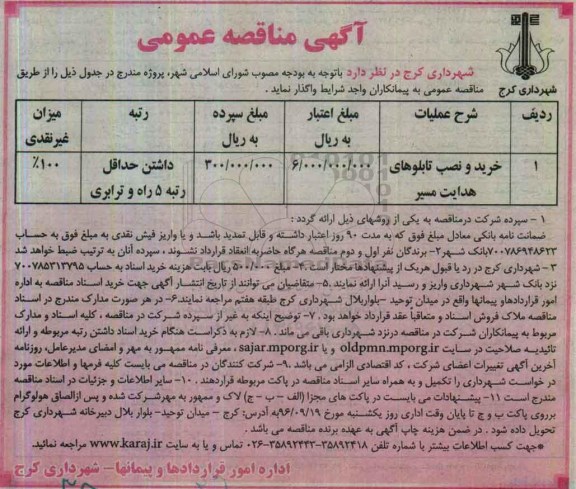 آگهی مناقصه عمومی
شهرداری کرج
شهرداری کرج در نظر دارد باتوجه به بودجه مصوب شورای اسلامی شهر، پروژه مندرج در جدول ذیل را از طریق
مناقصه عمومی به پیمانکاران واجد شرایط واگذار نماید .
ردیف شرح عملیات مبلغ اعتبار به ریال مبلغ سپرده به ریال رتبه میزان غیرنقدی
۱ خرید و نصب تابلوهای هدایت مسیر ۶/۰۰۰/۰۰۰/۰۰۰ ۳۰۰/۰۰۰/۰۰۰ داشتن حداقل رتبه ۵ راه و ترابری ۱۰۰٪
۱ - سپرده شرکت درمناقصه به یکی از روشهای ذیل ارائه گردد :
ضمانت نامه بانکی معادل مبلغ فوق که به مدت ۹۰ روز اعتبار داشته و قابل تمدید باشد و یا واریز فیش نقدی به مبلغ فوق به حساب
۷۰۰۷۸۶۹۴۸۶۲۳بانک شهر۲- برندگان نفر اول و دوم مناقصه هرگاه حاضربه انعقاد قرارداد نشوند ، سپرده آنان به ترتیب ضبط خواهد شد
۳ - شهرداری کرج در رد یا قبول هریک از پیشنهادها مختار است . ۴- مبلغ ریال بابت هزینه خرید اسناد به حساب ۷۰۰۷۸۵۳۱۳۷۹۵
نزد بانک شهر شهرداری واریز و رسید آنرا ارائه نمایند .۵- متقاضیان می توانند از تاریخ انتشار آگهی جهت خرید اسناد مناقصه به اداره
امور قراردادهاو پیمانها واقع در میدان توحید -بلواربلال شهرداری کرج طبقه هفتم مراجعه نمایند.۶- در هر صورت مدارک مندرج در اسناد
مناقصه ملاک فروش اسناد و متعاقبا عقد قرارداد خواهد بود .۷- توضیح اینکه به غیر از سپرده شرکت در مناقصه ، کلیه اسناد و مدارک
مربوط به پیمانکاران شرکت در مناقصه درنزد شهرداری باقی می ماند .۸- لازم به ذکراست هنگام خرید اسناد داشتن رتبه مربوطه و ارائه
تائیدیه صلاحیت در سایت oldpmn.mporg.ir و یا sajar.mporg.ir ، معرفی نامه ممهور به مهر و امضای مدیرعامل، روزنامه
آخرین آگهی تغییرات اعضای شرکت ، کد اقتصادی الزامی می باشد .۹- شرکت کنندگان در مناقصه می بایست کلیه فرمها و اطلاعات مورد
در خواست شهرداری را تکمیل و به همراه سایر اسناد مناقصه در پاکت مربوطه قراردهند . ۱۰- سایر اطلاعات و جزئیات در اسناد مناقصه
مندرج است ۱۱- پیشنهادات می بایست در پاکت های مجزا (الف - ب - ج) لاک و ممهور به مهرشرکت شده و پس ازالصاق هولوگرام
برروی پاکت ب و ج تا پایان وقت اداری روز یکشنبه مورخ ۹۶/۰۹/۱۹به آدرس: کرج - میدان توحید- بلوار بلال دبیرخانه شهرداری کرج
تحویل داده شود . در ضمن هزینه چاپ آگهی به عهده برنده مناقصه می باشد .
*جهت کسب اطلاعات بیشتر با شماره تلفن ۳۵۸۹۲۴۱۸-۳۵۸۹۲۴۴۳-۰۲۶ تماس و یا به سایت www.karaj.ir مراجعه نمائید.
اداره امور قراردادها و پیمانها- شهرداری کرج